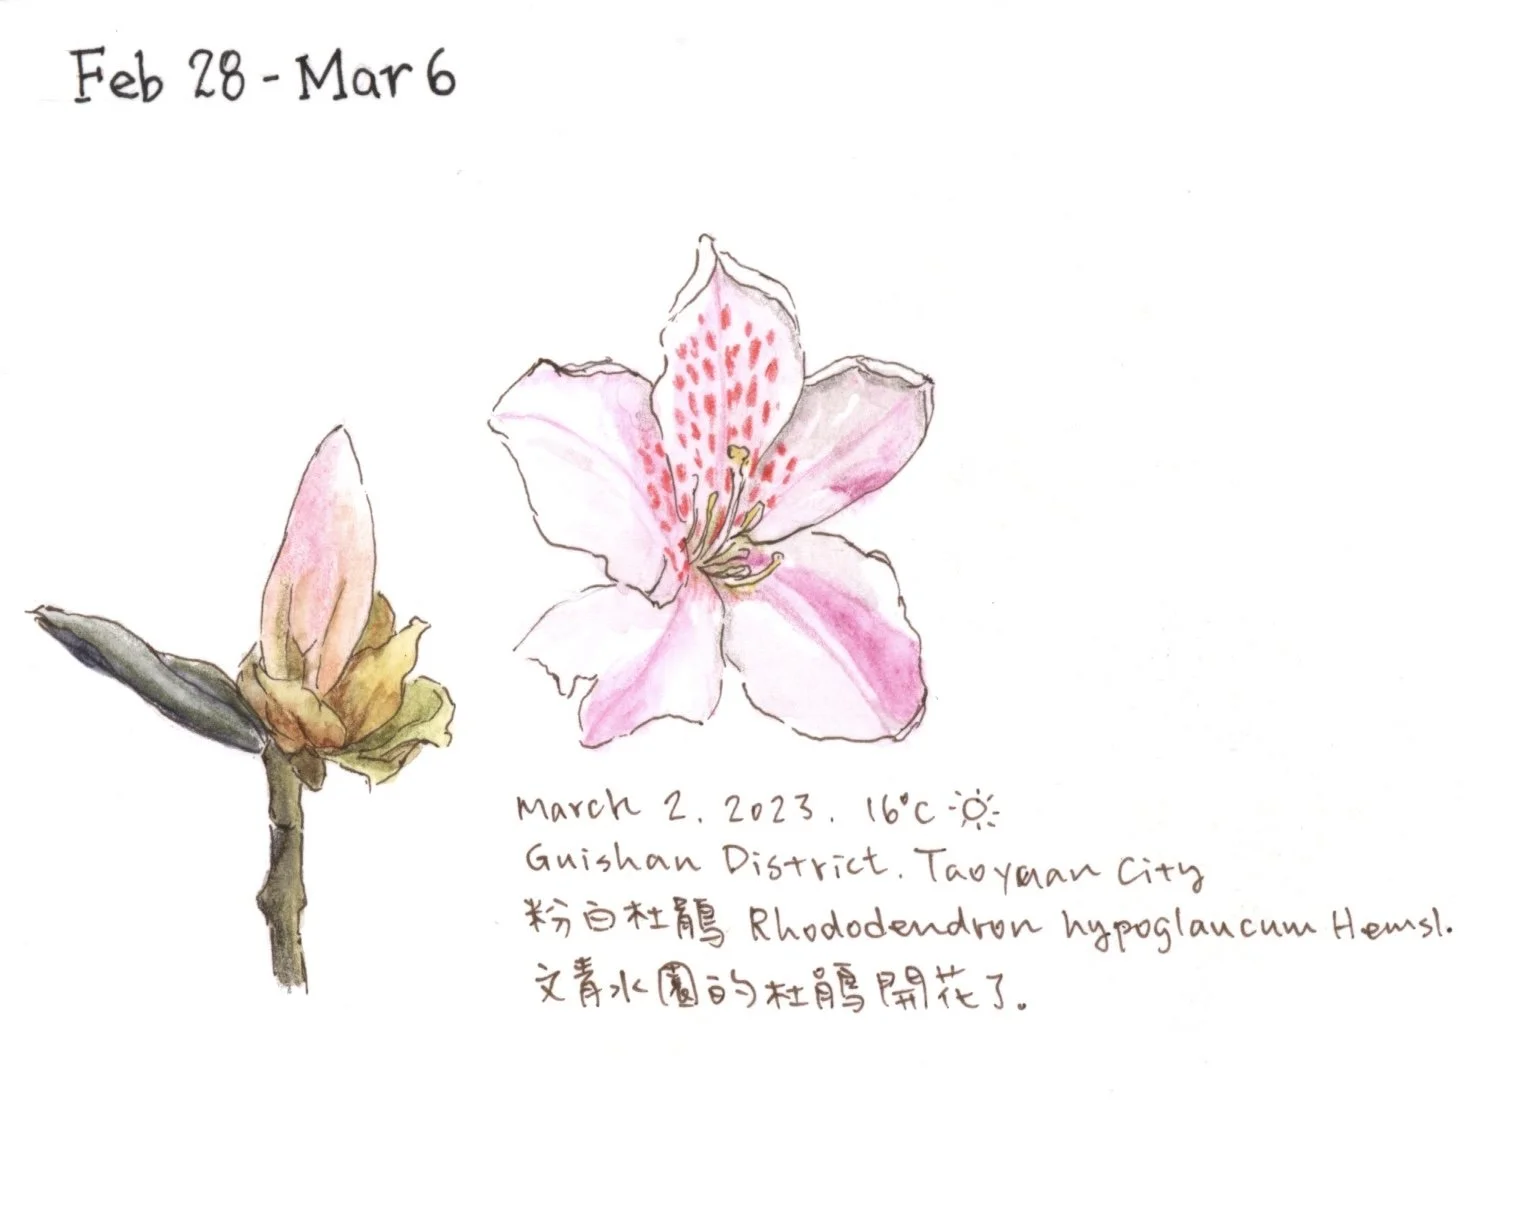 Feb 28 - Mar 6
March 2. 2023. 16°C ☼
Guishan District. Taoyuan City
粉白杜鵑 Rhododendron hypoglaucum Hemsl.
文青水園的杜鵑開花了。